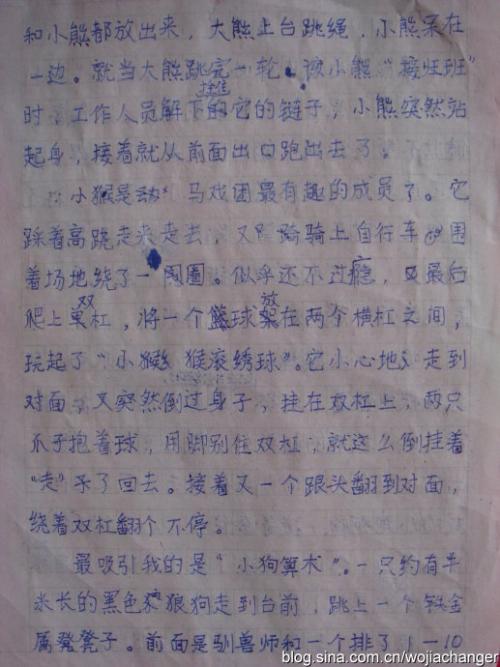 和小熊都放出来，大熊上台跳绳，小熊呆在
一边。就当大熊跳完一轮，该小熊"接班"
时，工作人员解下拴住它的链子，小熊突然站
起身，接着就从前面出口跑出去了。
小猴是动"马戏团最有趣的成员了。它
踩着高跷走来走去，又骑上自行车围
着场地绕了一圈。似乎还不过瘾，最后
爬上双杠，将一个篮球放在两个横杠之间，
玩起了"小猴猴滚绣球"。它小心地走到
对面，又突然倒过身子，挂在双杠上，两只
爪子抱着球，用脚别住双杠，就这么倒挂着
"走"了回去。接着又一个跟头翻到对面，
绕着双杠翻个不停。
最吸引我的是"小狗算术"。一只约有半
米长的黑色狼狗走到台前，跳上一个铁金
属凳子。前面是驯兽师和一个排了1—10
blog.sina.com.cn/wojiachanger